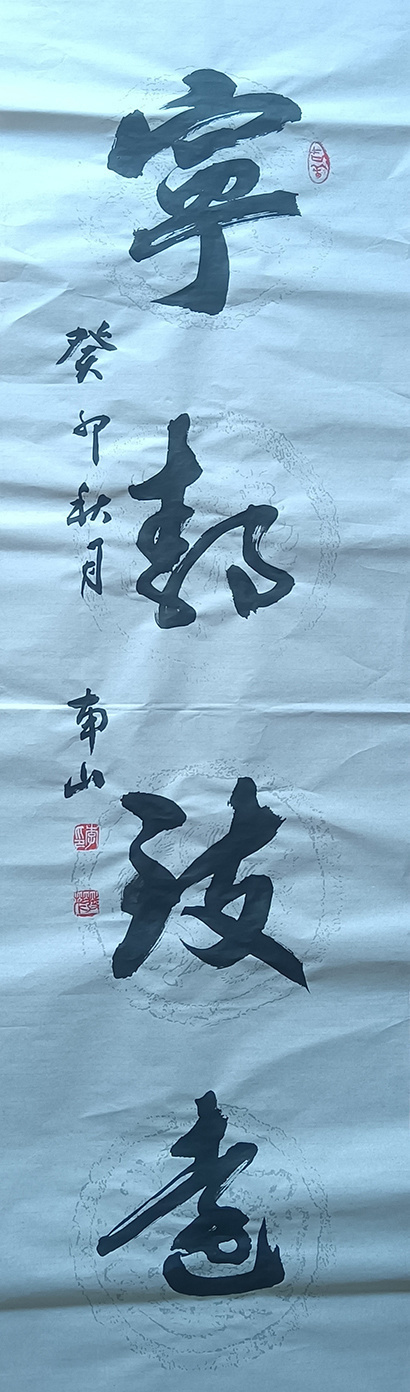 寧靜致遠
癸卯秋月
南山